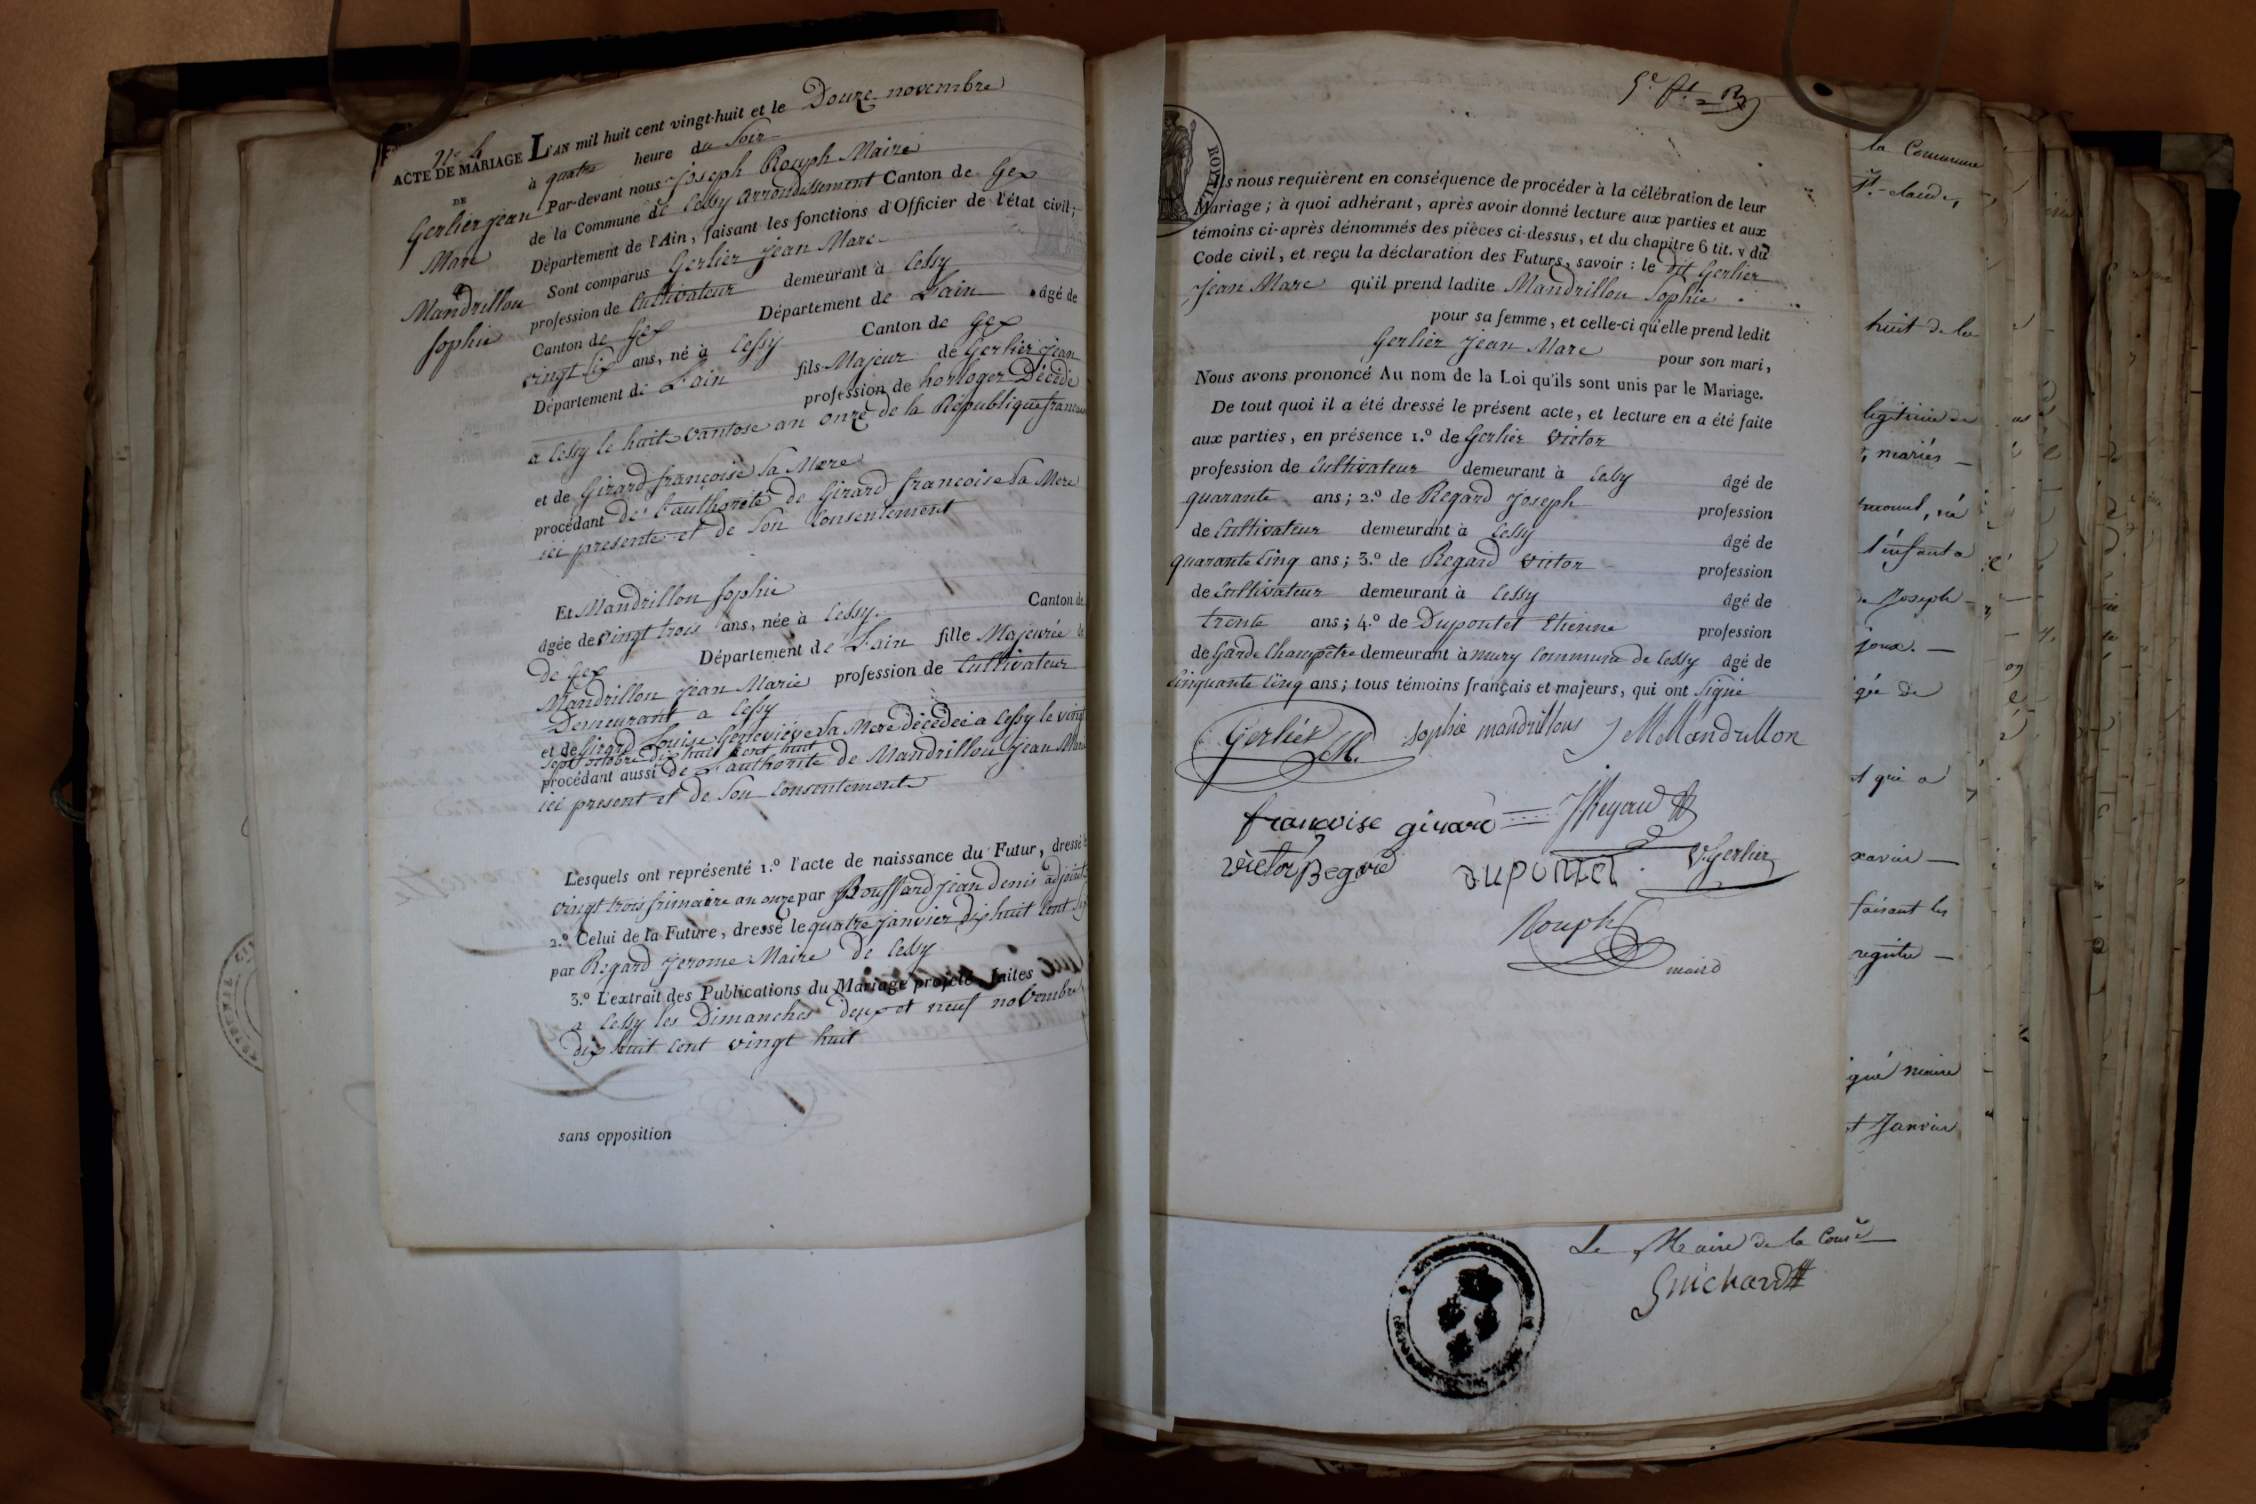 N° 4
ACTE DE MARIAGE
DE
Gerlier jean
Marc
et
Mandrillon
Sophie
L'AN mil huit cent vingt-huit et le Douze novembre
à quatre heure du Soir
Par-devant nous Joseph Rouph Maire
de la Commune de Cessy arrondissement Canton de Gex
Département de l'Ain, faisant les fonctions d'Officier de l'état civil;
Sont comparus Gerlier jean Marc
profession de Cultivateur demeurant à Cessy
Canton de Gex Département de L'ain âgé de
vingt six ans, né à Cessy Canton de Gex
Département de L'ain fils Majeur de Gerlier jean
profession de horloger Décédé
a Cessy le huit vantose an onze de la République francaise
et de Girard françoise Sa Mere
procédant de L'authorité de Girard francoise Sa Mere
ici presente et de Son Consentement
Et Mandrillon Sophie
âgée de vingt trois ans, née à Cessy Canton de
de Gex Département de L'ain fille Majeure de
Mandrillon jean Marie profession de Cultivateur
Demeurant a Cessy
et de Girard Louise Geneviève Sa Mere décédée a Cessy le vingt
Sept octobre dix huit Cent huit
procédant aussi de L'authorite de Mandrillon jean Marie
ici present et de Son Consentement
Lesquels ont représenté 1.º l'acte de naissance du Futur, dressé le
vingt trois frimaire an onze par Bouffard jean denis adjoint
2.º Celui de la Future, dressé le quatre janvier dix huit Cent Six
par Regard jerome Maire de Cessy
3.º L'extrait des Publications du Mariage projeté, faites
a Cessy les Dimanches deux et neuf novembre
dix huit Cent vingt huit
sans opposition
ROY
Ils nous requièrent en conséquence de procéder à la célébration de leur
Mariage; à quoi adhérant, après avoir donné lecture aux parties et aux
témoins ci-après dénommés des pièces ci-dessus, et du chapitre 6 tit. v du
Code civil, et reçu la déclaration des Futurs, savoir: le dit Gerlier
Jean Marc qu'il prend ladite Mandrillon Sophie
pour sa femme, et celle-ci qu'elle prend ledit
Gerlier jean Marc pour son mari,
Nous avons prononcé Au nom de la Loi qu'ils sont unis par le Mariage.
De tout quoi il a été dressé le présent acte, et lecture en a été faite
aux parties, en présence 1.º de Gerlier victor
profession de Cultivateur demeurant à Cessy âgé de
quarante ans; 2.º de Regard joseph profession
de Cultivateur demeurant à Cessy âgé de
quarante Cinq ans; 3.º de Regard victor profession
de Cultivateur demeurant à Cessy âgé de
trente ans; 4.º de Dupontet Etienne profession
de Garde Champêtre demeurant à mury Commune de Cessy âgé de
Cinquante Cinq ans; tous témoins français et majeurs, qui ont Signé
Gerlier JM. sophie mandrillons J M Mandrillon
francoise girard J Regard
victor Regard DUPONTET V. Gerlier
Rouph
maire
la Commune
St.-claude,
huit de la
legitime de
mariés
l'enfant a
de Joseph
joux.
gée de
et qui a
xavier
faisant les
registre
gné maire
et Janvier
Le Maire de la Comè
Guichard